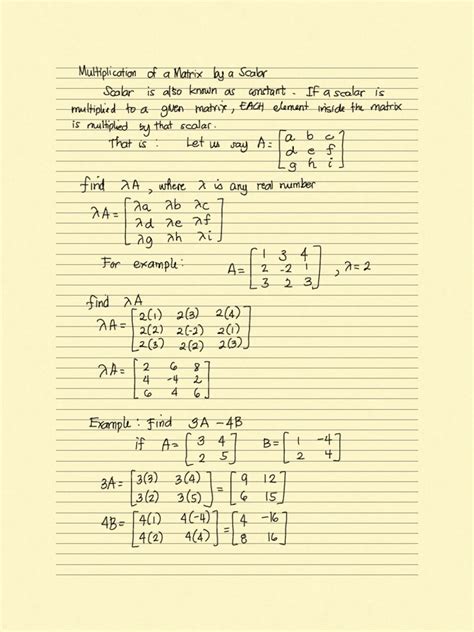 Multiplication of a Matrix by a Scalar
Scalar is also known as constant. If a scalar is
multiplied to a given matrix, EACH element inside the matrix
is multiplied by that scalar.
That is : Let us say A = [a b c
d e f
g h i]
find λA, where λ is any real number
λA = [λa λb λc
λd λe λf
λg λh λi]
For example: A = [1 3 4
2 -2 1
3 2 3], λ=2
find λA
λA = [2(1) 2(3) 2(4)
2(2) 2(-2) 2(1)
2(3) 2(2) 2(3)]
λA = [2 6 8
4 -4 2
6 4 6]
Example : Find 3A - 4B
if A = [3 4
2 5] B = [1 -4
2 4]
3A = [3(3) 3(4)
3(2) 3(5)] = [9 12
6 15]
4B = [4(1) 4(-4)
4(2) 4(4)] = [4 -16
8 16]